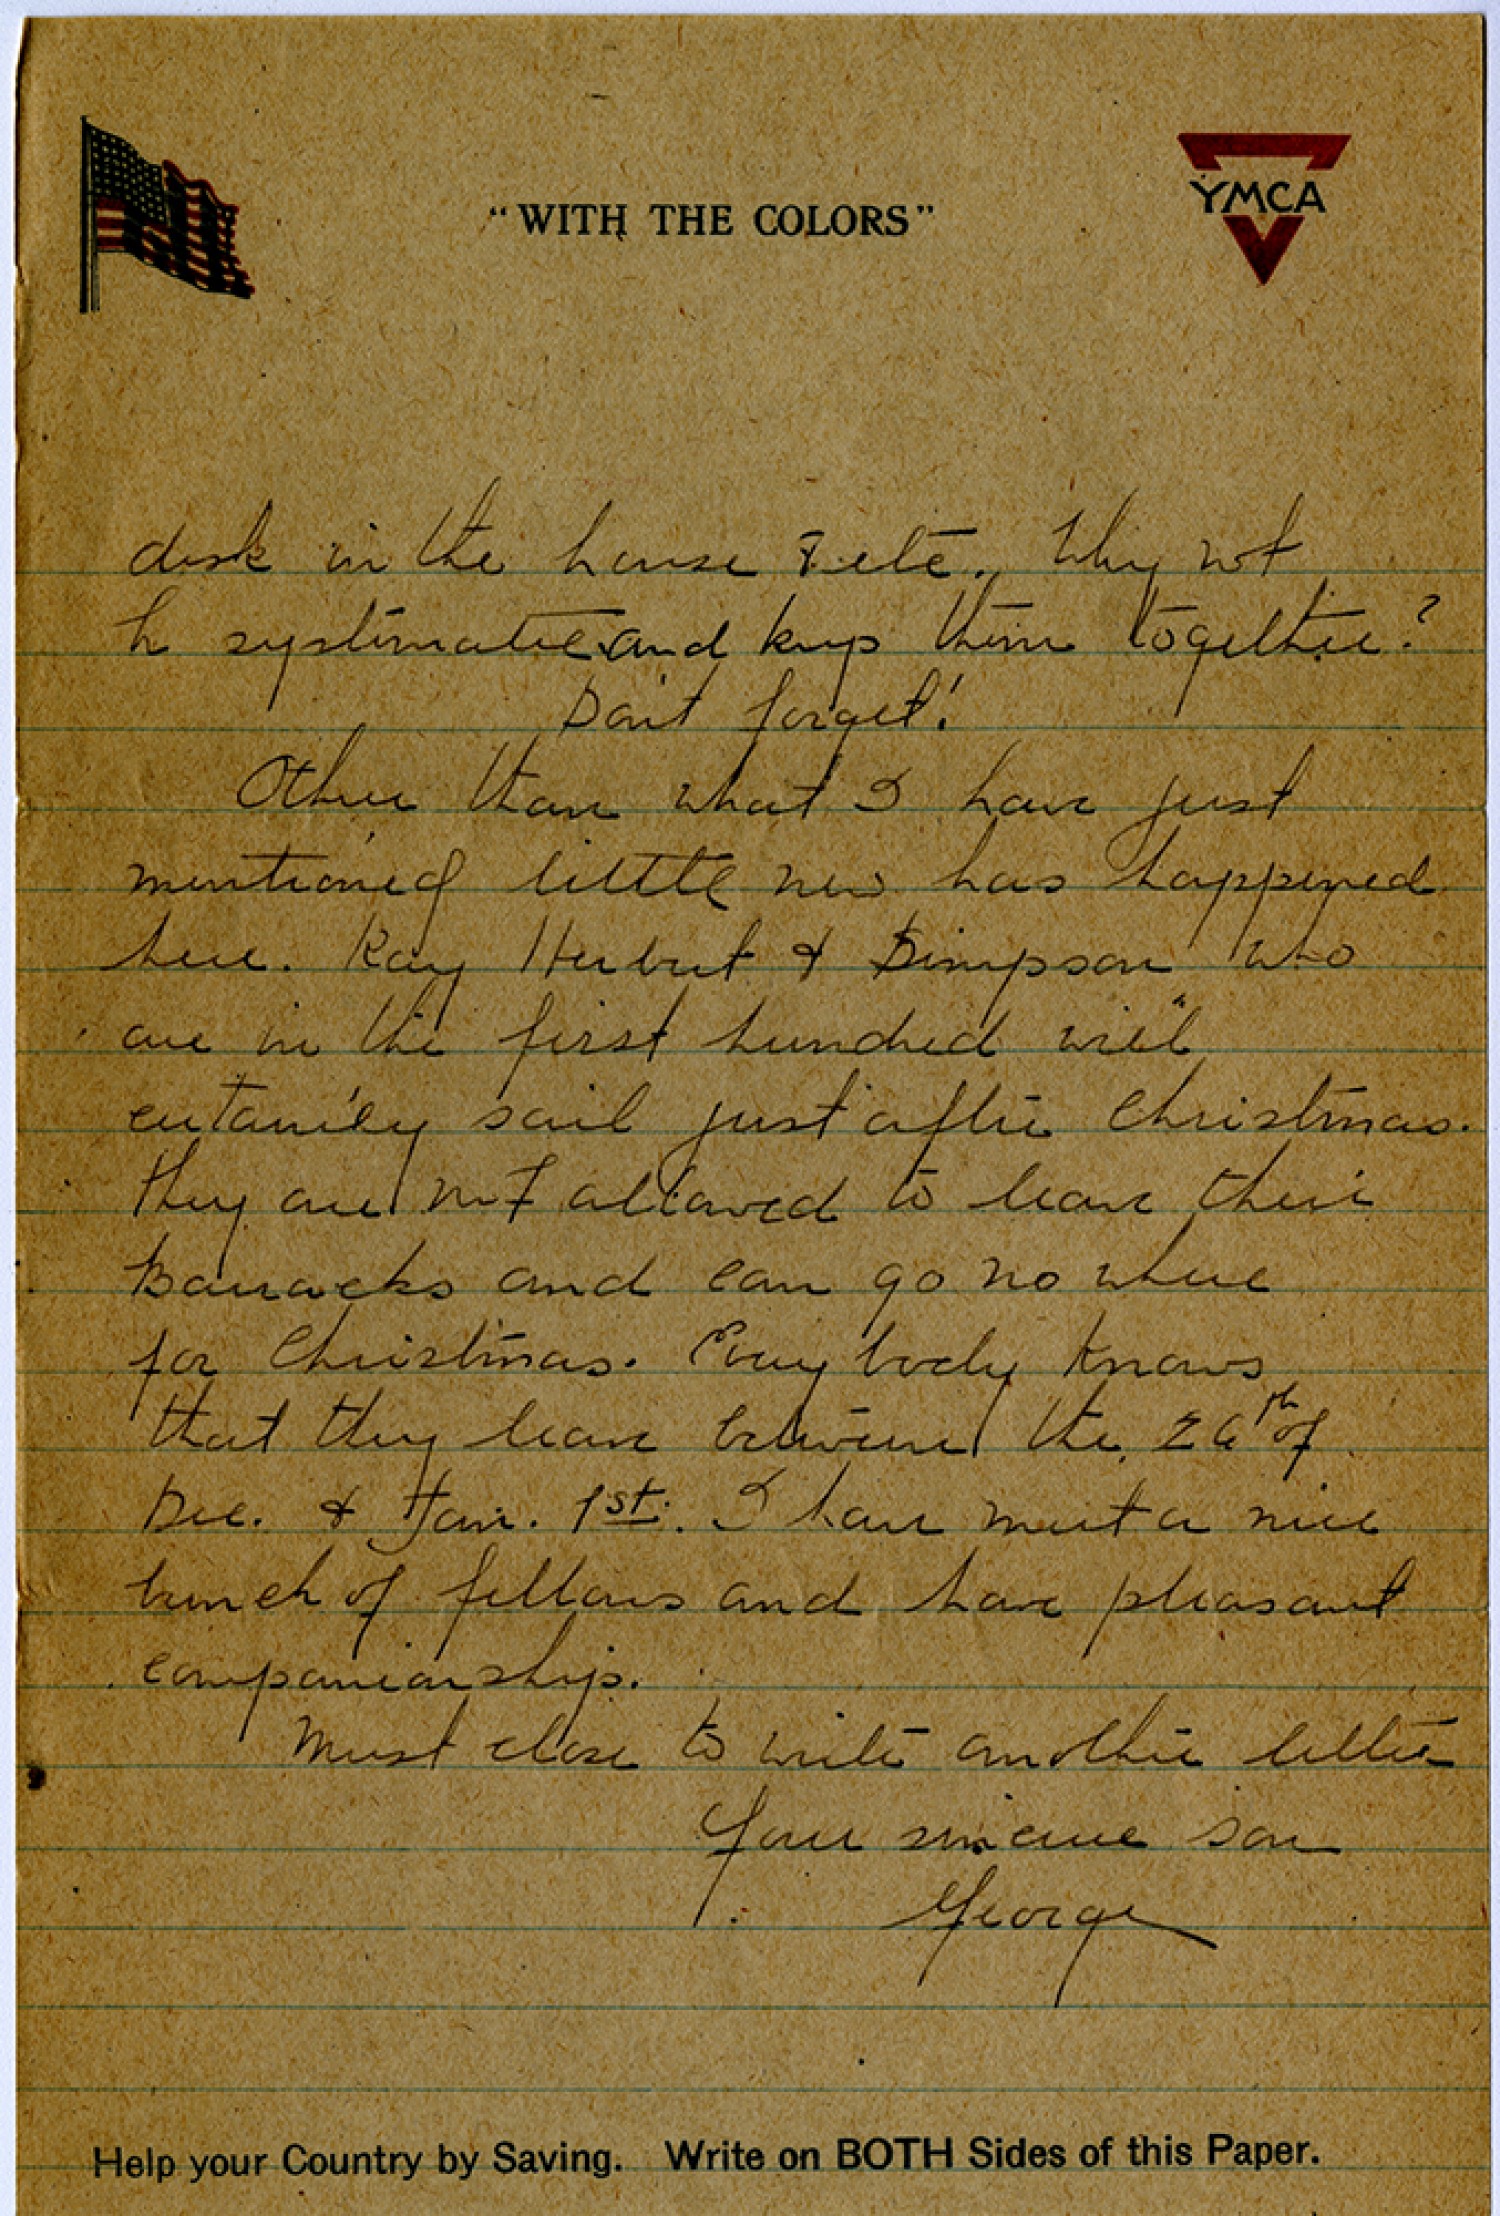 "WITH THE COLORS"
YMCA
desk in the house & etc. Why not
be systematic and keep them together?
Don't forget!
Other than what I have just
mentioned little new has happened
here. Ray Herbert & Simpson who
are in the first hundred will
certainly sail just after Christmas.
They are not allowed to leave their
Barracks and can go no where
for Christmas. Every body knows
that they leave between the 26th of
Dec. & Jan. 1st. I have meet a nice
bunch of fellows and have pleasant
companionship.
Must close to write another letter
Your sincere son
George
Help your Country by Saving. Write on BOTH Sides of this Paper.